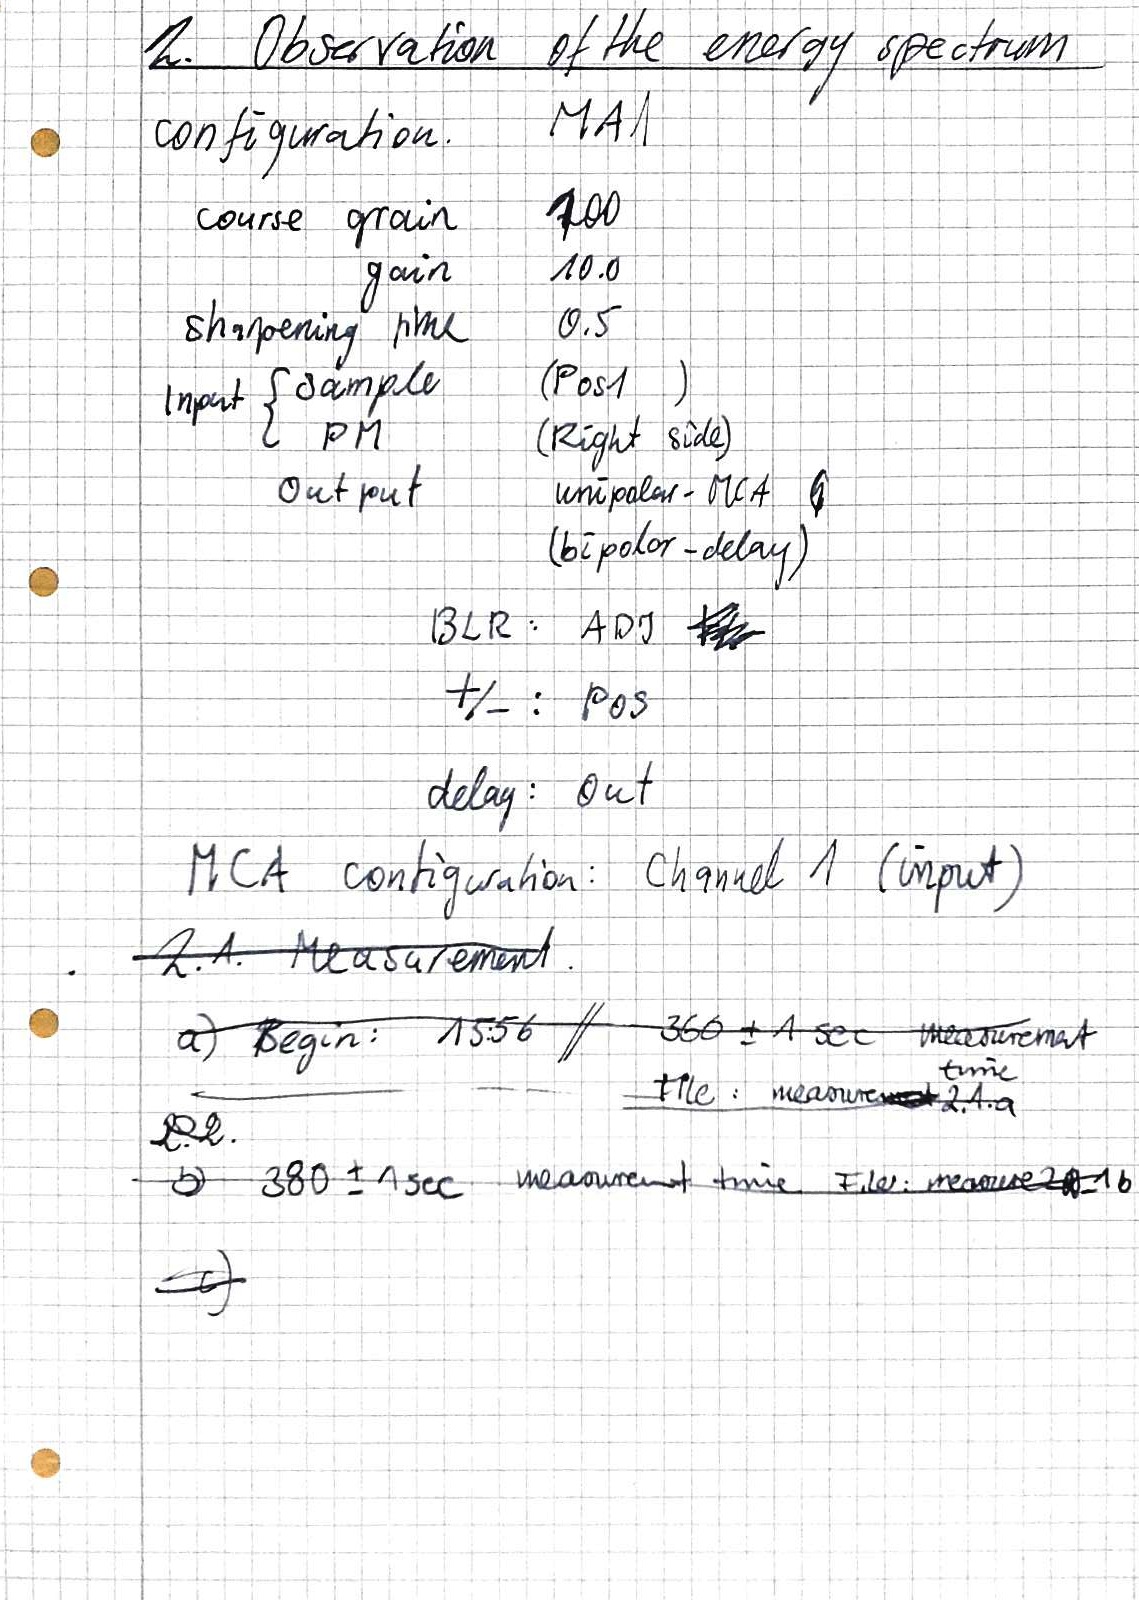 2. Observation of the energy spectrum
configuration. MA1
course grain 100
gain 10.0
sharpening time 0.5
Input { Sample (Pos1 )
PM (Right side)
Output unipolar - MCA
(bipolar - delay)
BLR: ADJ
+/- : POS
delay: Out
MCA configuration: Channel 1 (input)
2.1. Measurement.
a) Begin: 15:56 // 360 ± 1 sec measurement
time
File: measurement 2.1.a
2.2.
b) 380 ± 1 sec measurement time File: measure 2 1b
c)